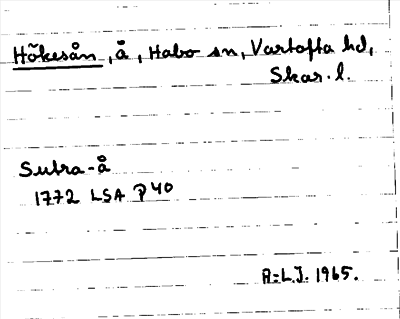 Hökesån, å, Habo sn, Vartofta hd,
Skar. l.
Sutra-å
1772 LSA P 40
A:LJ. 1965.